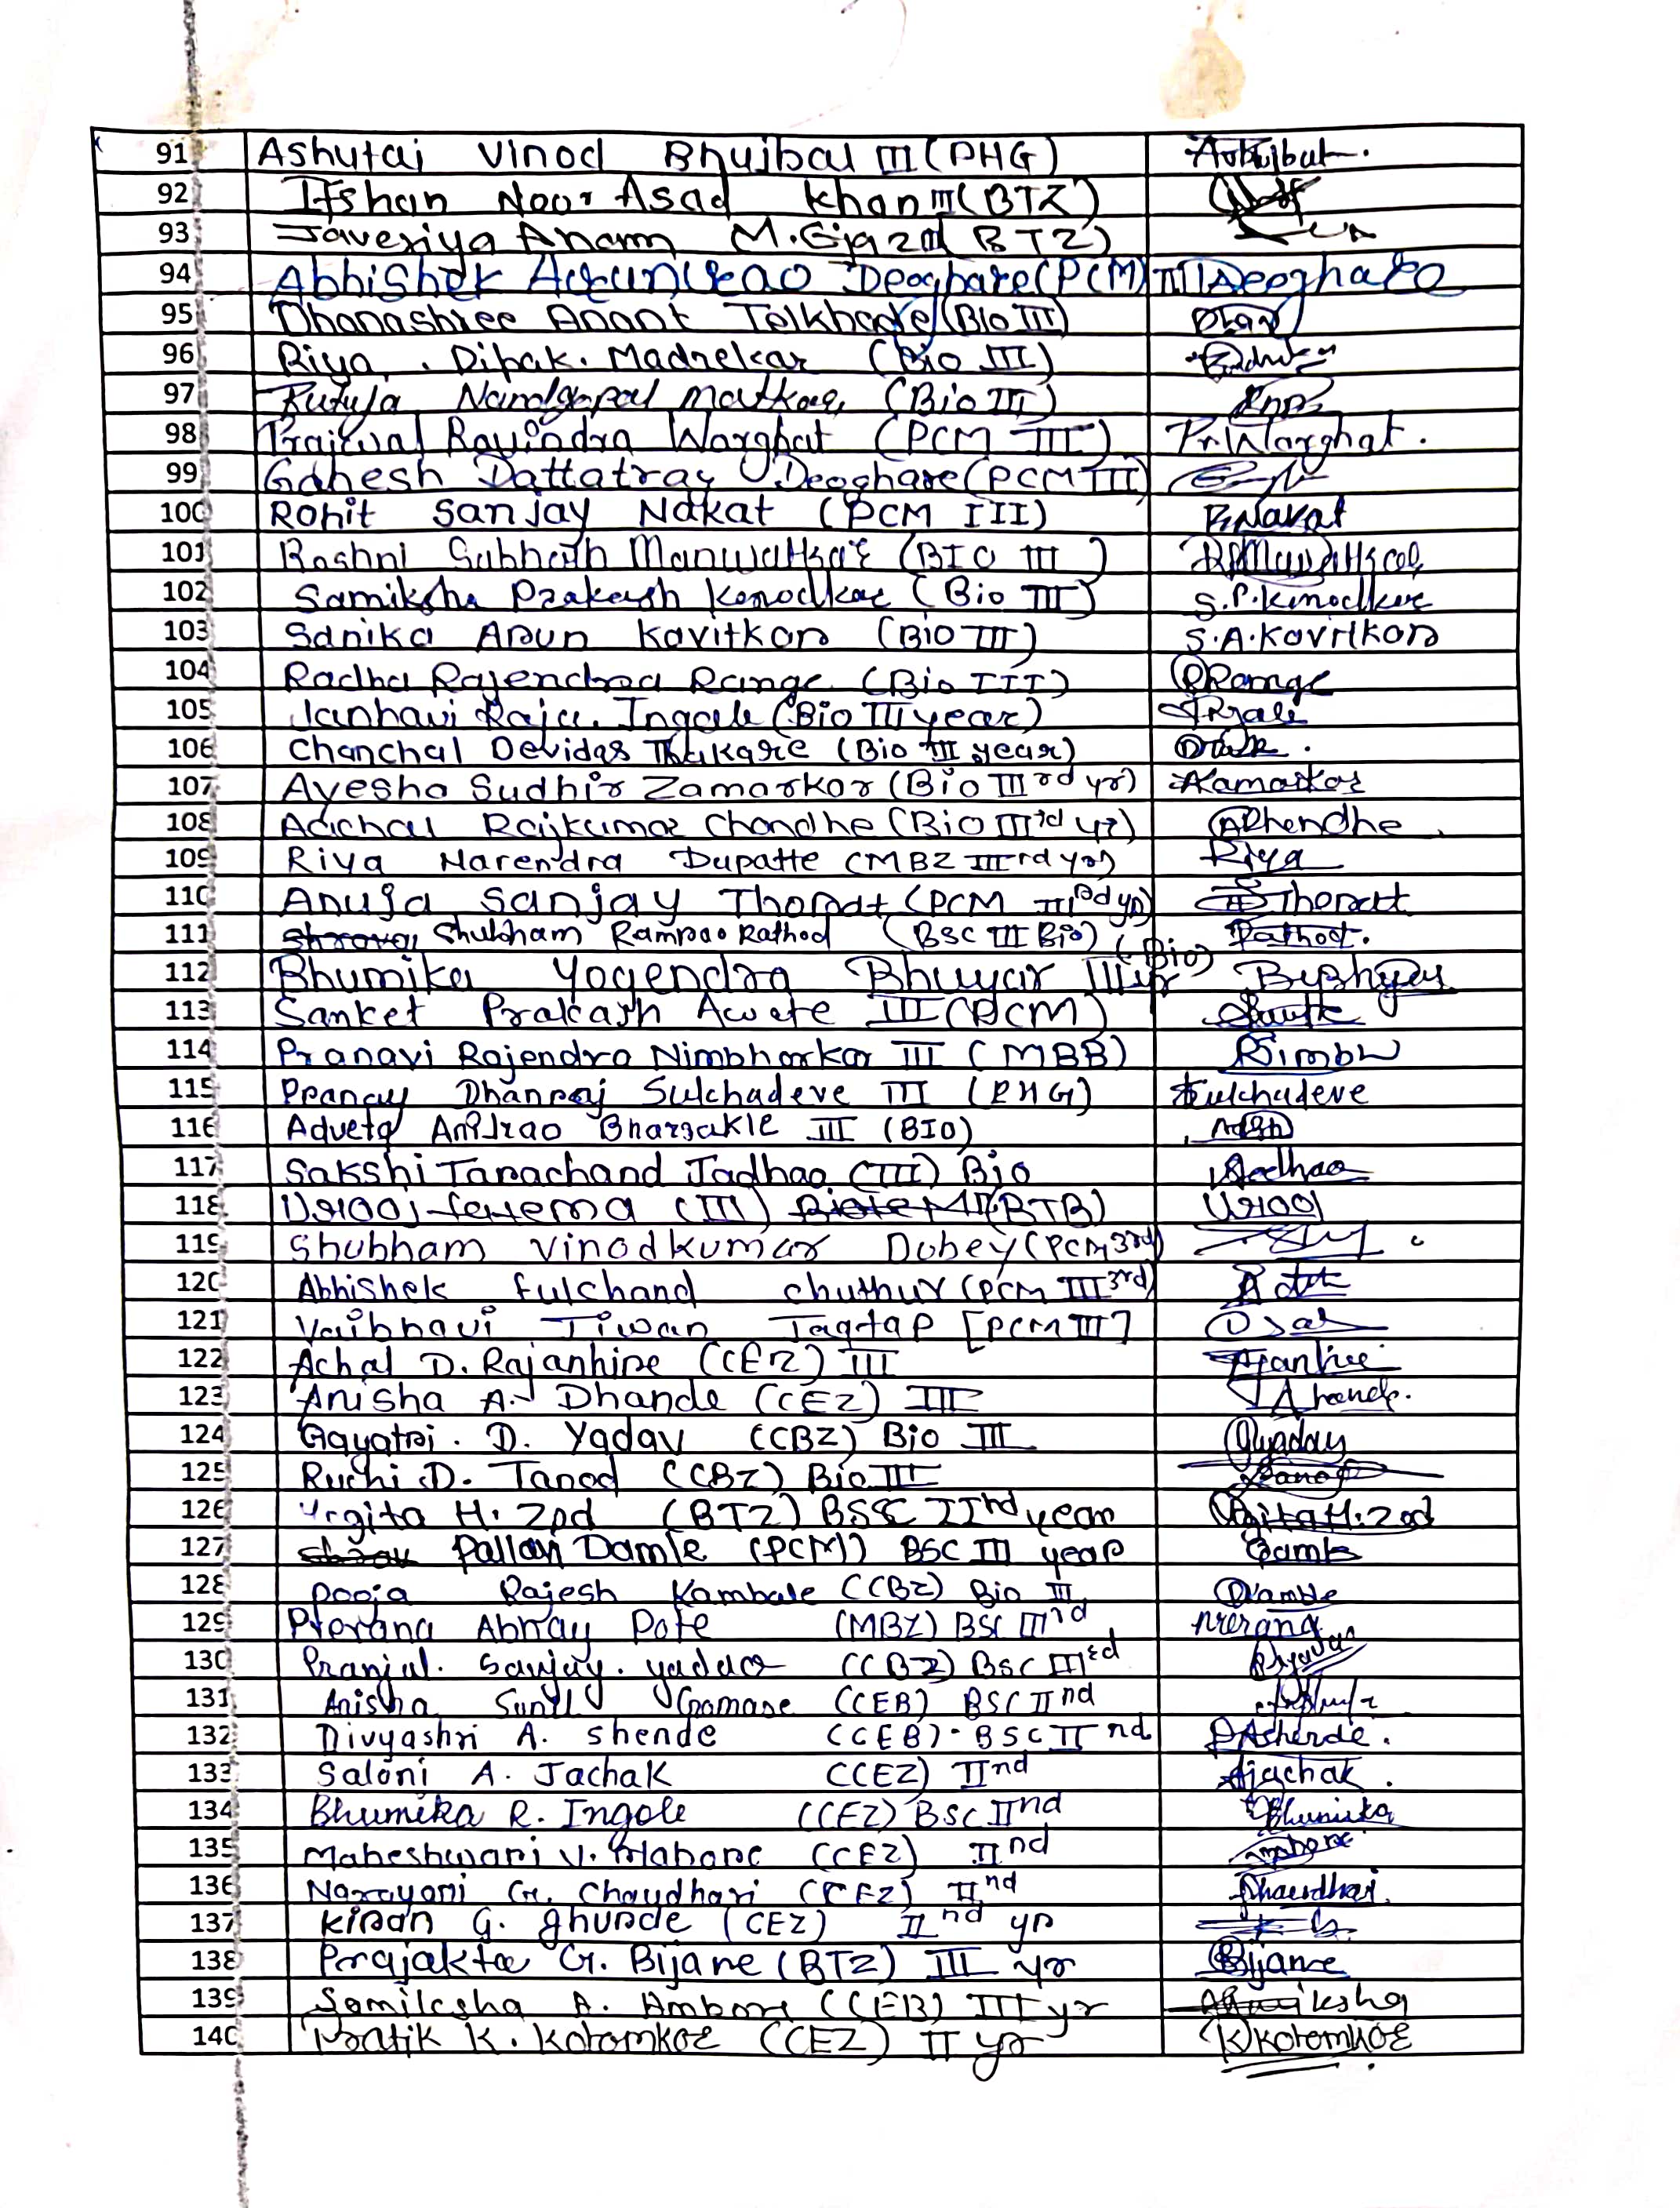 91 Ashutai Vinod Bhujbal III (PHG)
92 Ifshan Noor Asad Khan III (BTZ)
93 Javeriya Anam M. Ejaz III (BTZ)
94 Abhishek Arunrao Deoghare (PCM) III Deoghare
95 Dhanashree Anant Telkhade (Bio III)
96 Riya . Dipak. Madnekar (Bio III)
97 Rutuja Nandgopal (Bio III)
98 Prajwal Ravindra Warghat (PCM III) Pr Warghat.
99 Ganesh Dattatray Deoghare (PCM III)
100 Rohit Sanjay Nakat (PCM III)
101 Roshni Subhash Manwatkar (BIO III)
102 Samiksha Prakash Kanodkar (Bio III) S.P.Kanodkar
103 Sanika Arun Kavitkar (Bio III) S.A.Kavitkar
104 Radha Rajendra Range (Bio III) RRange
105 Janhavi Raju. Ingale (Bio III year)
106 Chanchal Devidas Thakare (Bio III year)
107 Ayesha Sudhir Zamarkar (Bio III rd yr)
108 Aachal Rajkumar Chondhe (Bio III rd yr)
109 Riya Narendra Dupatte (MBZ III rd yr) Riya
110 Anuja Sanjay Thorat (PCM III rd yr) Thorat
111 Shubham Ramrao Rathod (BSC III Bio) Rathod.
112 Bhumika Yogendra Bhuyar III yr (Bio)
113 Sanket Prakash Awate III (PCM)
114 Pranavi Rajendra Nimbharkar III (MBB)
115 Pranay Dhanraj Sulchadeve III (PHG) Sulchadeve
116 Adveta Anilrao Bharsakle III (BIO)
117 Sakshi Tarachand Jadhao (III) Bio Jadhao
118 Urooj fatema (III) (BTB) Urooj
119 Shubham Vinodkumar Dubey (PCM 3rd)
120 Abhishek fulchand chuthur (PCM III 3rd)
121 Vaibhavi Jiwan Jagtap [PCM III]
122 Achal D. Rajanhire (CEZ) III
123 Anisha A. Dhande (CEZ) III
124 Gayatri . D. Yadav (CBZ) Bio III Gyadav
125 Ruchi D. Tanod (CBZ) Bio III
126 Yogita H. Zod (BTZ) BSC IInd year Yogita H. Zod
127 Pallavi Damle (PCM) BSC III year
128 Pooja Rajesh Kambale (CBZ) Bio III
129 Prerana Abhay Pote (MBZ) BSC IIIrd Prerana
130 Pranjal. Sanjay. yadao (CBZ) BSC IIIrd
131 Anisha Sunil Gomase (CEB) BSC IInd
132 Divyashri A. Shende (CEB) - BSC II nd DAShende.
133 Saloni A. Jachak (CEZ) IInd Ajachak.
134 Bhumika R. Ingole (CEZ) BSC IInd Bhumika
135 Maheshwari V. Mahore (CEZ) IInd
136 Narayani G. Chaudhari (CEZ) IInd
137 Kiran G. ghurde (CEZ) II nd yr
138 Prajakta G. Bijane (BTZ) III yr Bijane
139 Samiksha A. Ambore (CEB) III yr
140 Pratik K. Kolamkar (CEZ) II yr Kkolamkar